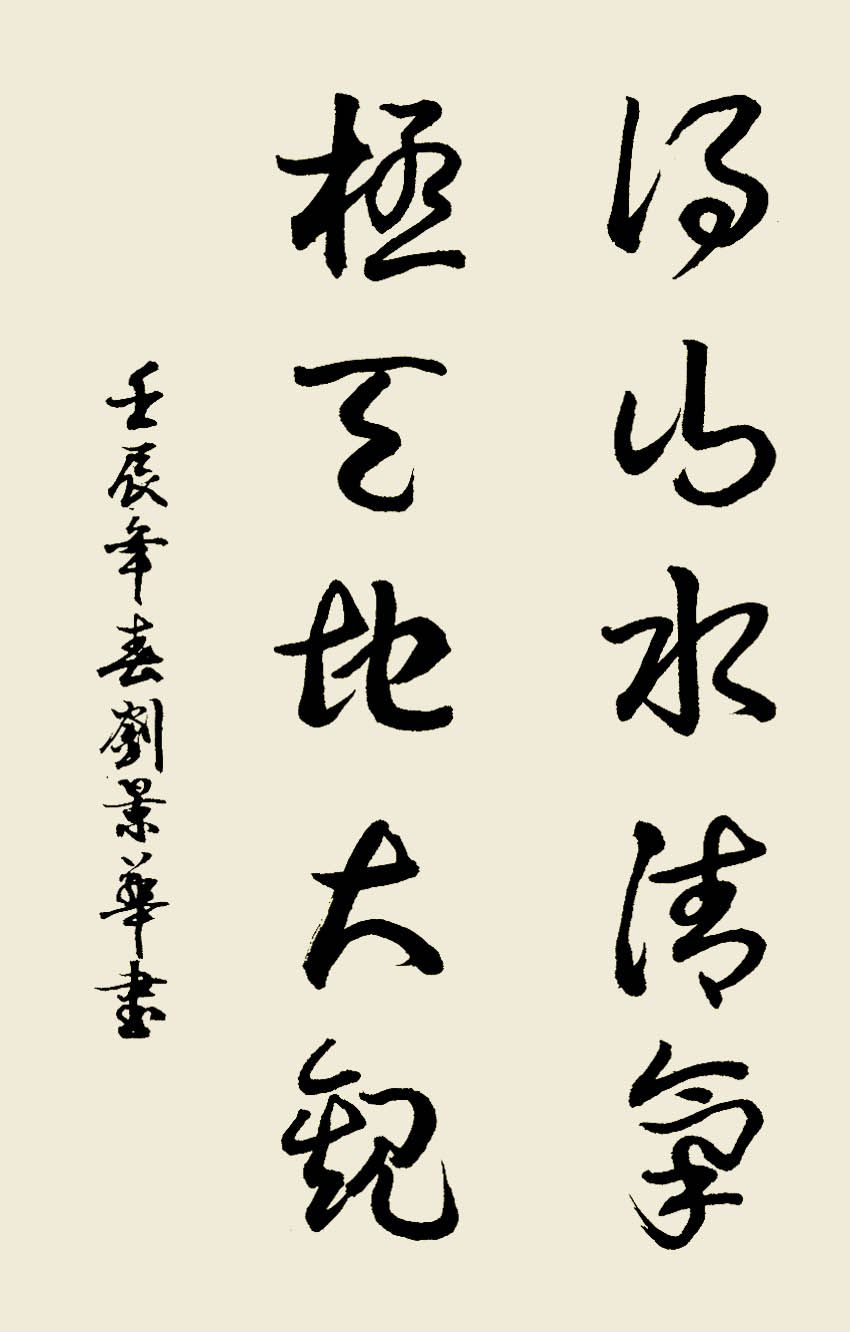 得山水清氣
極天地大觀
壬辰年春劉景華書